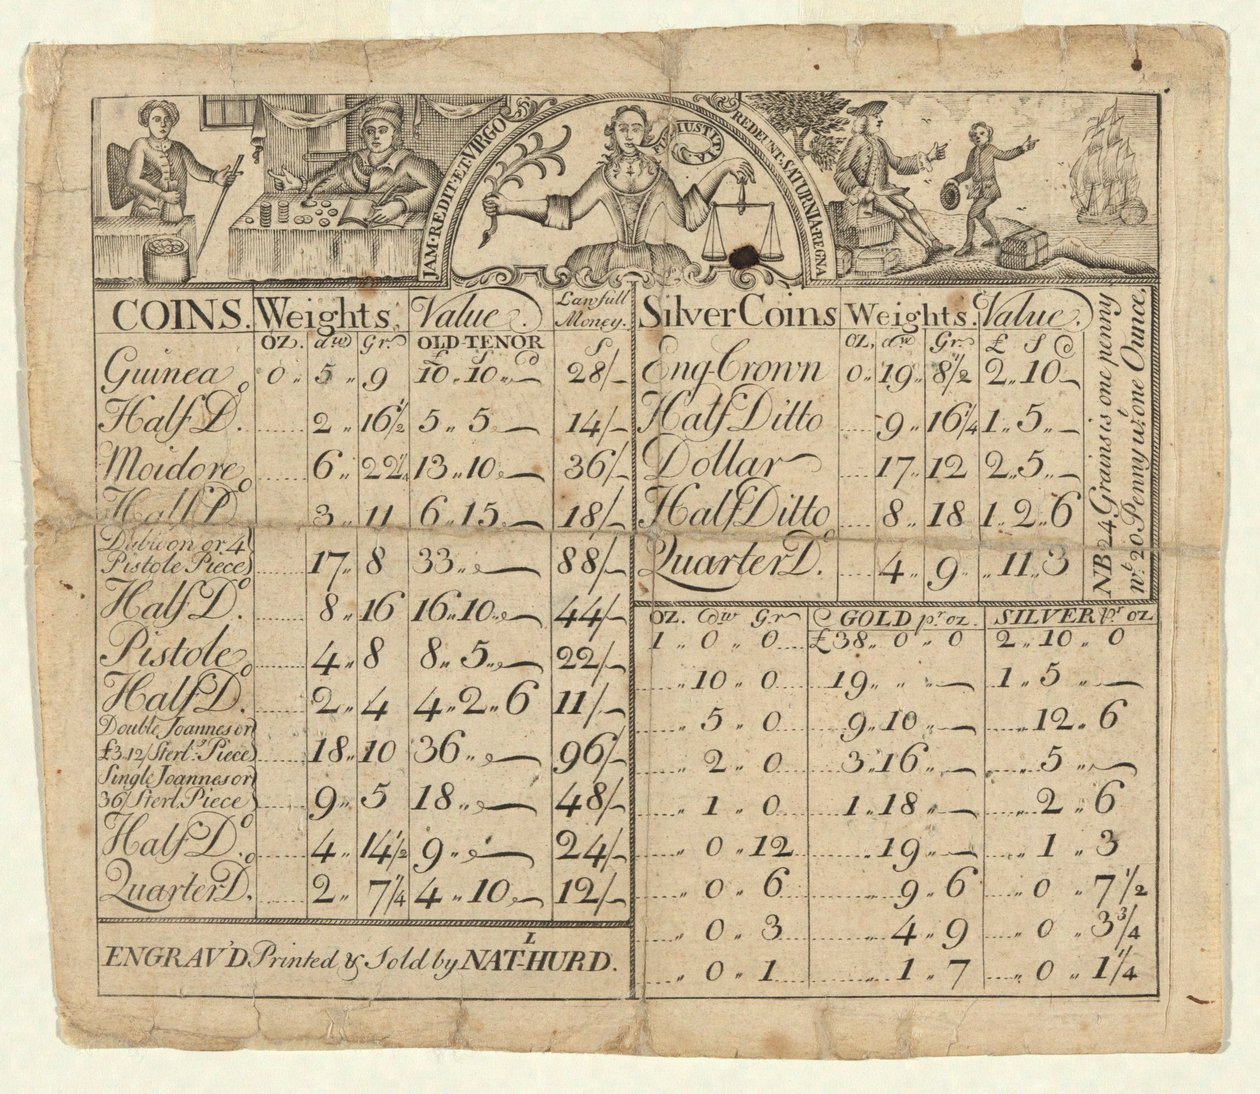 JAM·REDIT·ET·VIRGO
IUSTITIA
REDEUNT·SATURNIA·REGNA
COINS. Weights. Value. Lawfull Money.
OZ. dwt Gr. OLD TENOR
£ S d S
Guinea 0 „ 5 „ 9 10 „ 10 „ — 28/—
Half Do. 2 „ 16 1/2 5 „ 5 — 14/—
Moidore 6 „ 22 1/4 13 „ 10 — 36/—
Half Do. 3 „ 11 6 „ 15 — 18/—
Dubloon or 4
Pistole Piece 17 „ 8 33 „ — 88/—
Half Do. 8 „ 16 16 „ 10 — 44/—
Pistole 4 „ 8 8 „ 5 „ — 22/—
Half Do. 2 „ 4 4 „ 2 „ 6 11/—
Double Joannes or
£3.12/Sterlg. Piece 18 „ 10 36 „ — 96/—
Single Joannes or
36/Sterl. Piece 9 „ 5 18 „ — 48/—
Half Do. 4 „ 14 1/2 9 „ — 24/—
Quarter Do. 2 „ 7 1/4 4 „ 10 — 12/—
ENGRAV'D Printed & Sold by NATL HURD.
Silver Coins Weights. Value.
OZ, dwt Gr. £ S d
Eng. Crown 0 „ 19 „ 8 1/2 2 „ 10 —
Half Ditto 9 „ 16 1/4 1 „ 5 „ —
Dollar 17 „ 12 2 „ 5 —
Half Ditto 8 „ 18 1 „ 2 „ 6
Quarter Do. 4 „ 9 „ 11 „ 3
NB 24 Grains is one penny
wt. 20 Penny wt. one Ounce.
OZ. dwt Gr. GOLD pr oz. SILVER pr oz
1 „ 0 „ 0 £38 „ 0 „ 0 2 „ 10 „ 0
„ 10 „ 0 19 „ „ — 1 „ 5 „ —
„ 5 „ 0 9 „ 10 „ — „ 12 „ 6
„ 2 „ 0 3 „ 16 „ — „ 5 „ —
„ 1 „ 0 1 „ 18 „ — „ 2 „ 6
„ 0 „ 12 „ 19 „ — „ 1 „ 3
„ 0 „ 6 „ 9 „ 6 „ 0 „ 7 1/2
„ 0 „ 3 „ 4 „ 9 „ 0 „ 3 3/4
„ 0 „ 1 „ 1 „ 7 „ 0 „ 1 1/4